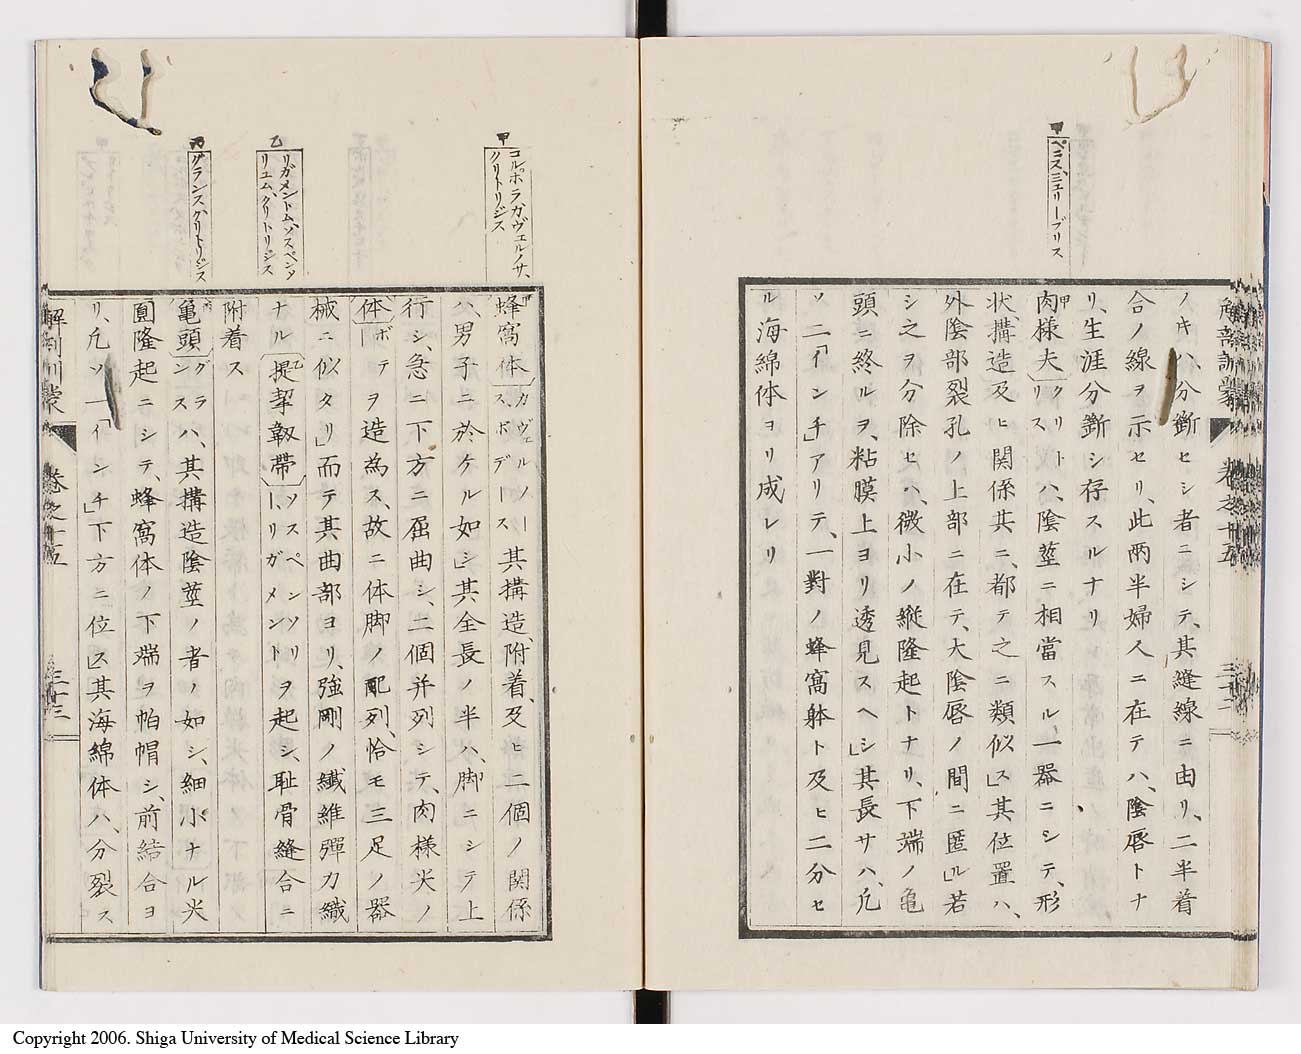 甲
ペニス、ミュリーブリス
ノキハ、分斷セシ者ニシテ、其縫線ニ由リ、二半着
合ノ線ヲ示セリ、此兩半婦人ニ在テハ、陰唇トナ
リ、生涯分斷シ存スルナリ
甲肉様夫クリトリスハ、陰莖ニ相當スル、一器ニシテ、形
状搆造及ヒ関係共ニ、都テ之ニ類似ス」其位置ハ、
外陰部裂孔ノ上部ニ在テ、大陰唇ノ間ニ匿ル」若
シ之ヲ分除セハ、微小ノ縦隆起トナリ、下端ノ亀
頭ニ終ルヲ、粘膜上ヨリ透見スヘシ」其長サハ、凡
ソ二「インチ」アリテ、一對ノ蜂窩躰ト及ヒ二分セ
ル海綿体ヨリ成レリ
解剖訓蒙 巻之十五 三十二
甲
コルポラカヴェルノサ、
クリトリジス
乙
リガメントム、ソスペンソ
リユム、クリトリジス
丙
グランス、クリトリジス
甲蜂窩体カヴェルノースボデース其搆造、附着、及ヒ二個ノ関係
ハ、男子ニ於ケル如シ」其全長ノ半ハ、脚ニシテ上
行シ、急ニ下方ニ屈曲シ、二個并列シテ、肉様尖ノ
体ボデヲ造為ス、故ニ体脚ノ配列、恰モ三足ノ器
械ニ似タリ」而テ其曲部ヨリ、強剛ノ纖維彈力纖
ナル乙提挈靱帶ソスペンソリー、リガメントヲ起シ、耻骨縫合ニ
附着ス
丙亀頭グランスハ、其搆造陰莖ノ者ノ如シ、細小ナル尖
圓隆起ニシテ、蜂窩体ノ下端ヲ帕帽シ、前結合ヨ
リ、凡ソ一「インチ」下方ニ位ス」其海綿体ハ、分裂ス
解剖訓蒙 巻之十五 三十三
Copyright 2006. Shiga University of Medical Science Library